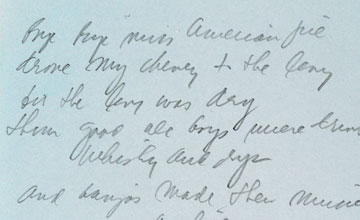 Bye Bye miss American pie
drove my chevy to the levy
but the levy was dry
them good ole boys were
Whisky And rye
And banjos made them